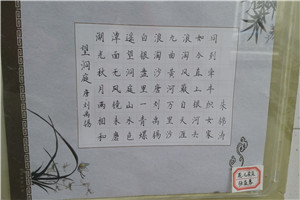 望洞庭 唐 刘禹锡
湖光秋月两相和
潭面无风镜未磨
遥望洞庭山水色
白银盘里一青螺
浪淘沙
九曲黄河万里沙
浪淘风簸自天涯
如今直上银河去
同到牵牛织女家